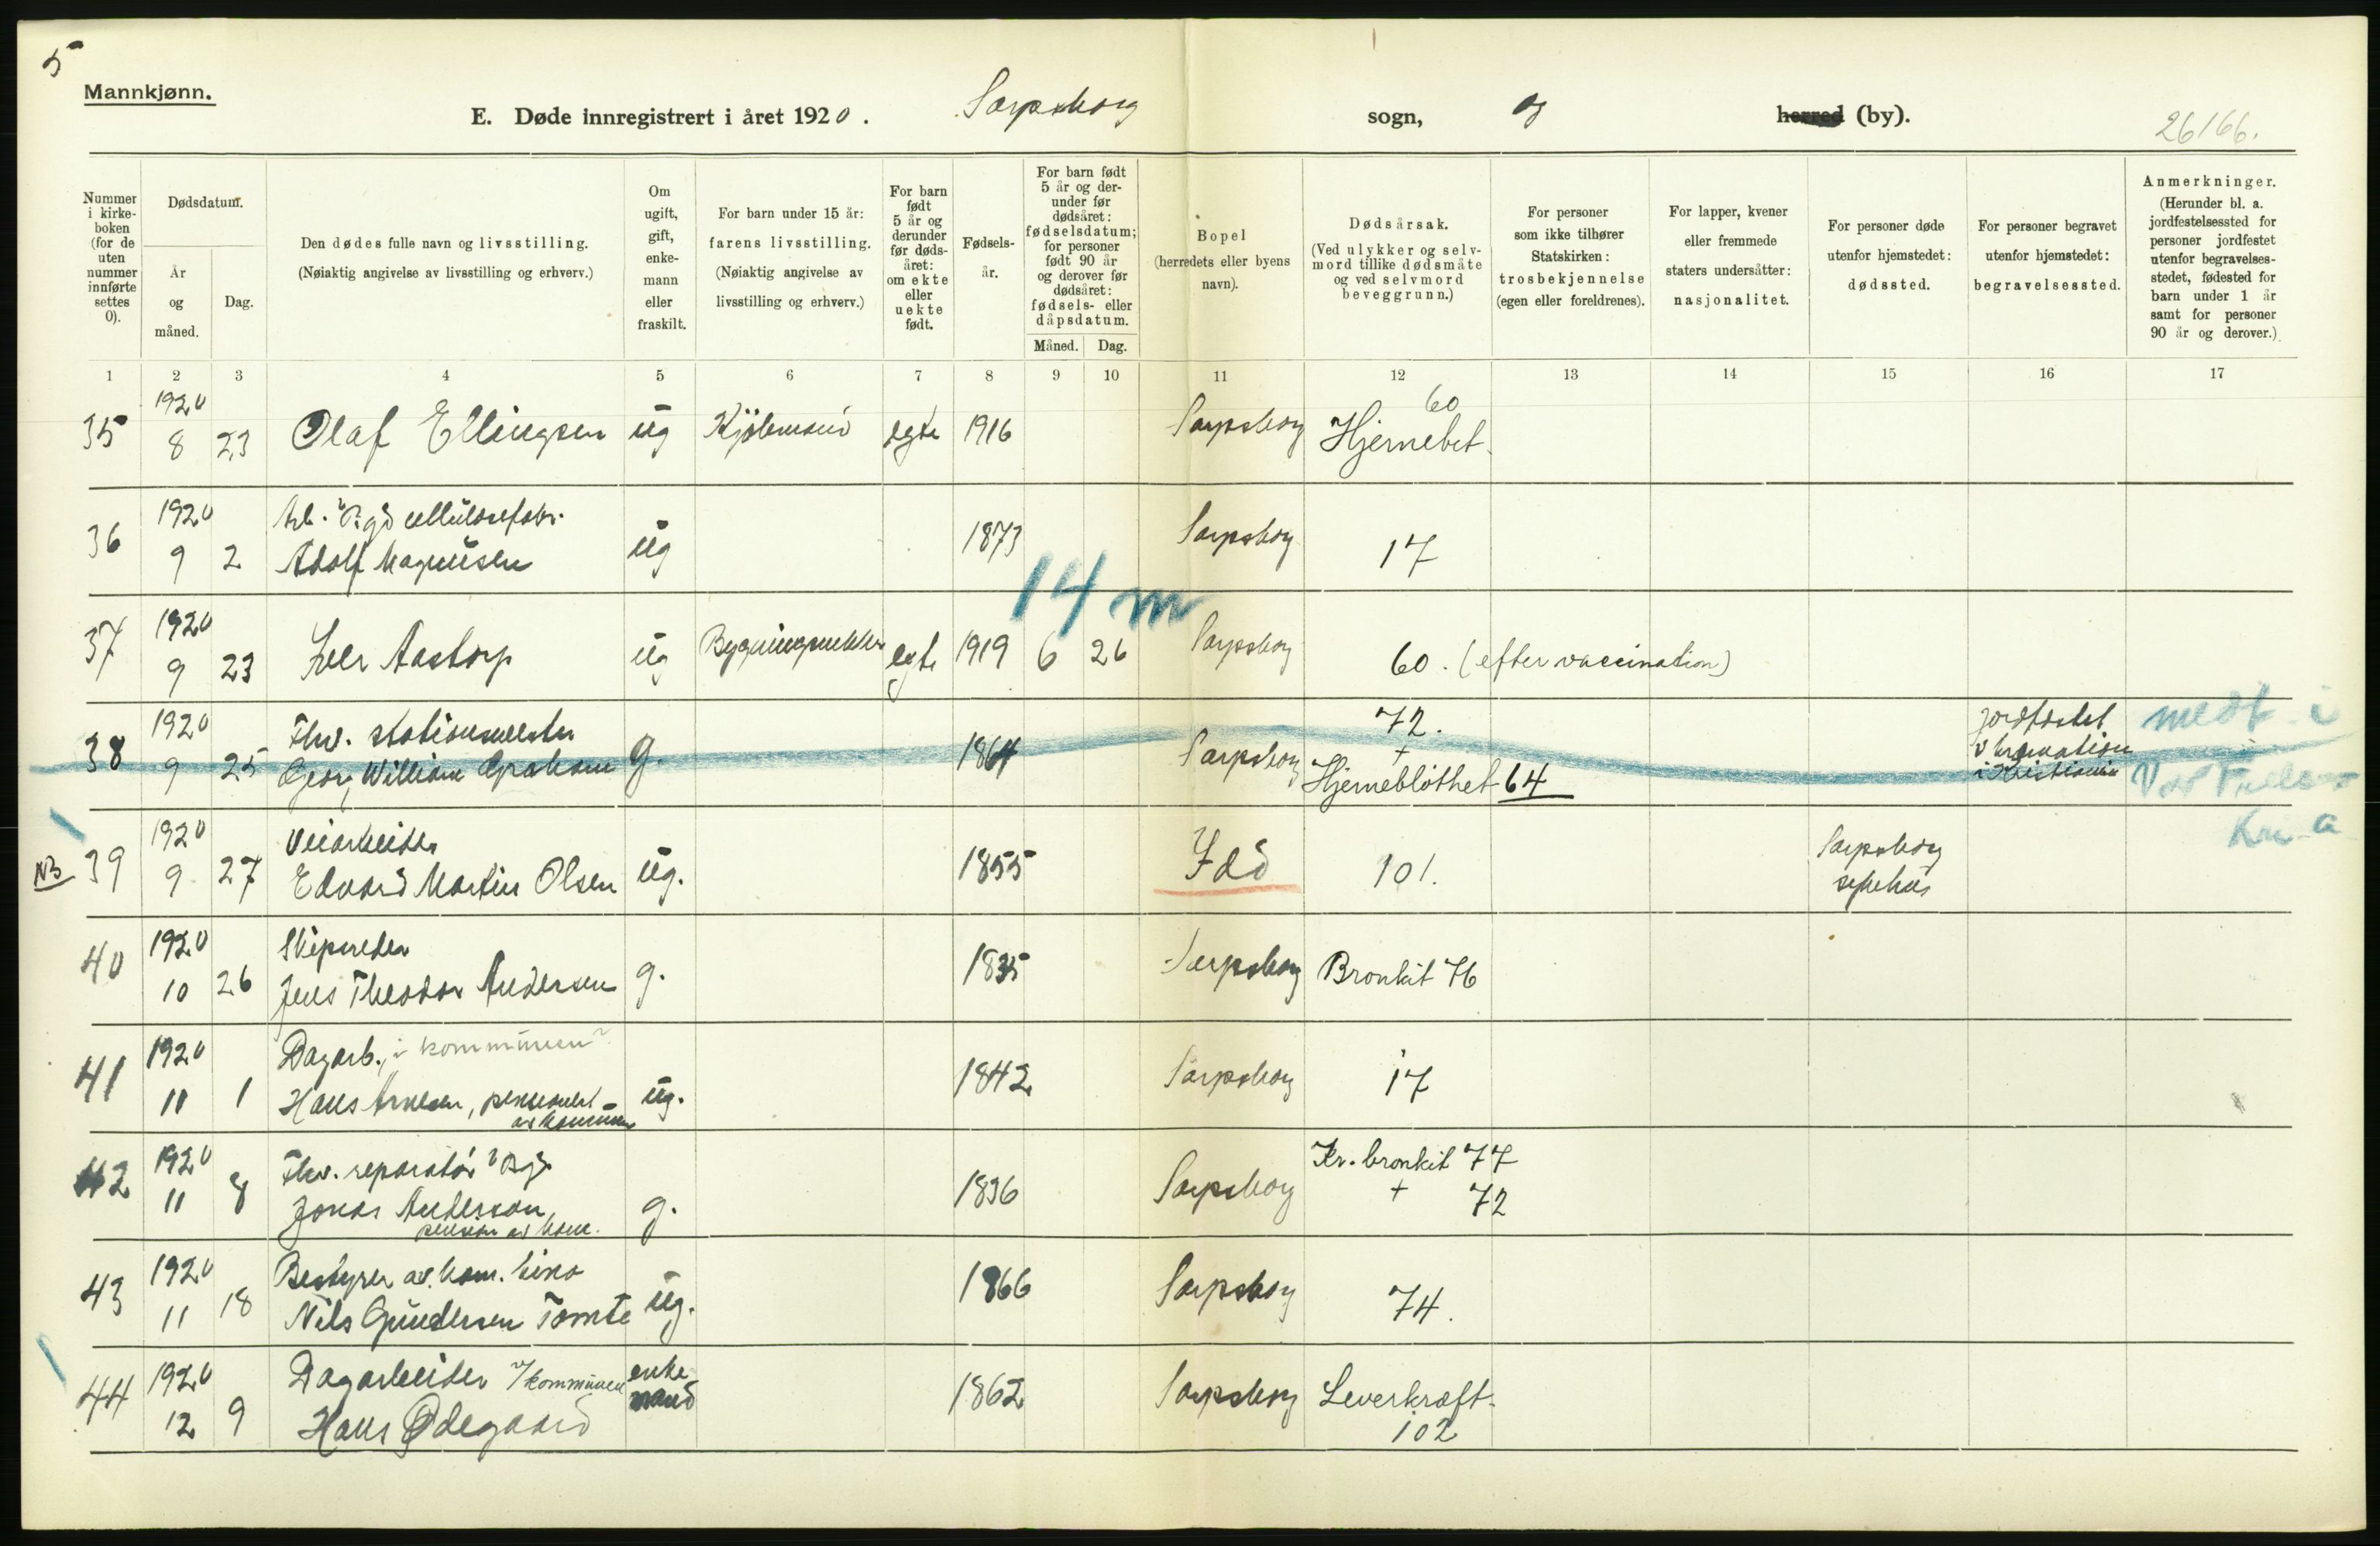 5
Mannkjønn.
E. Døde innregistrert i året 1920. Sarpsborg sogn, og herred (by).
26166.
Nummer i kirke-boken (for de uten nummer innførte settes 0).
Dødsdatum.
År og måned.
Dag.
Den dødes fulle navn og livsstilling.
(Nøiaktig angivelse av livsstilling og erhverv.)
Om ugift, gift, enke-mann eller fraskilt.
For barn under 15 år: farens livsstilling.
(Nøiaktig angivelse av livsstilling og erhverv.)
For barn født 5 år og derunder før døds-året: om ekte eller uekte født.
Fødsels-år.
For barn født 5 år og der-under før dødsåret: fødselsdatum; for personer født 90 år og derover før dødsåret: fødsels- eller dåpsdatum.
Måned. Dag.
Bopel
(herredets eller byens navn).
Dødsårsak.
(Ved ulykker og selv-mord tillike dødsmåte og ved selvmord beveggrunn.)
For personer som ikke tilhører Statskirken: trosbekjennelse
(egen eller foreldrenes).
For lapper, kvener eller fremmede staters undersåtter: nasjonalitet.
For personer døde utenfor hjemstedet: dødssted.
For personer begravet utenfor hjemstedet: begravelsessted.
Anmerkninger.
(Herunder bl. a. jordfestelsessted for personer jordfestet utenfor begravelses-stedet, fødested for barn under 1 år samt for personer 90 år og derover.)
1 2 3 4 5 6 7 8 9 10 11 12 13 14 15 16 17
35 1920 8 23 Olaf Ellingsen ug Kjøbmand egte 1916 Sarpsborg 60 Hjernebet.
36 1920 9 2 Arb. v. Bgd cellulosefabr.
Adolf Magnussen ug 1873 Sarpsborg 17
14 m
37 1920 9 23 Iver Aastorp ug egte 1919 6 26 Sarpsborg 60. (efter vaccination)
38 1920 9 25 Fhv. stationsmester
Georg William Graham g. 1864 Sarpsborg 72.
+
Hjerneblöthet 64
jordfæstet
v kremation
i Kristiania
medt i
Kr.a
NB 39 1920 9 27 Veiarbeider
Edvard Martin Olsen ug. 1855 Idd 101. Sarpsborg
sykehus
40 1920 10 26 Skipsreder
Jens Theodor Andersen g. 1835 Sarpsborg Bronkit 76
41 1920 11 1 Dagarb. i kommunen?
Hans Arnesen, pensionert
av kommunen ug. 1842 Sarpsborg 17
42 1920 11 8 Fhv. reparatør v Bgd.
Jonas Andersson
pension av kom. g. 1836 Sarpsborg Kr. bronkit 77
+ 72
43 1920 11 18 Bestyrer av kom. kino
Nils Gundersen Tomte ug. 1866 Sarpsborg 74.
44 1920 12 9 Dagarbeider v/kommunen
Hans Ødegaard enkemand 1862 Sarpsborg Leverkræft.
102